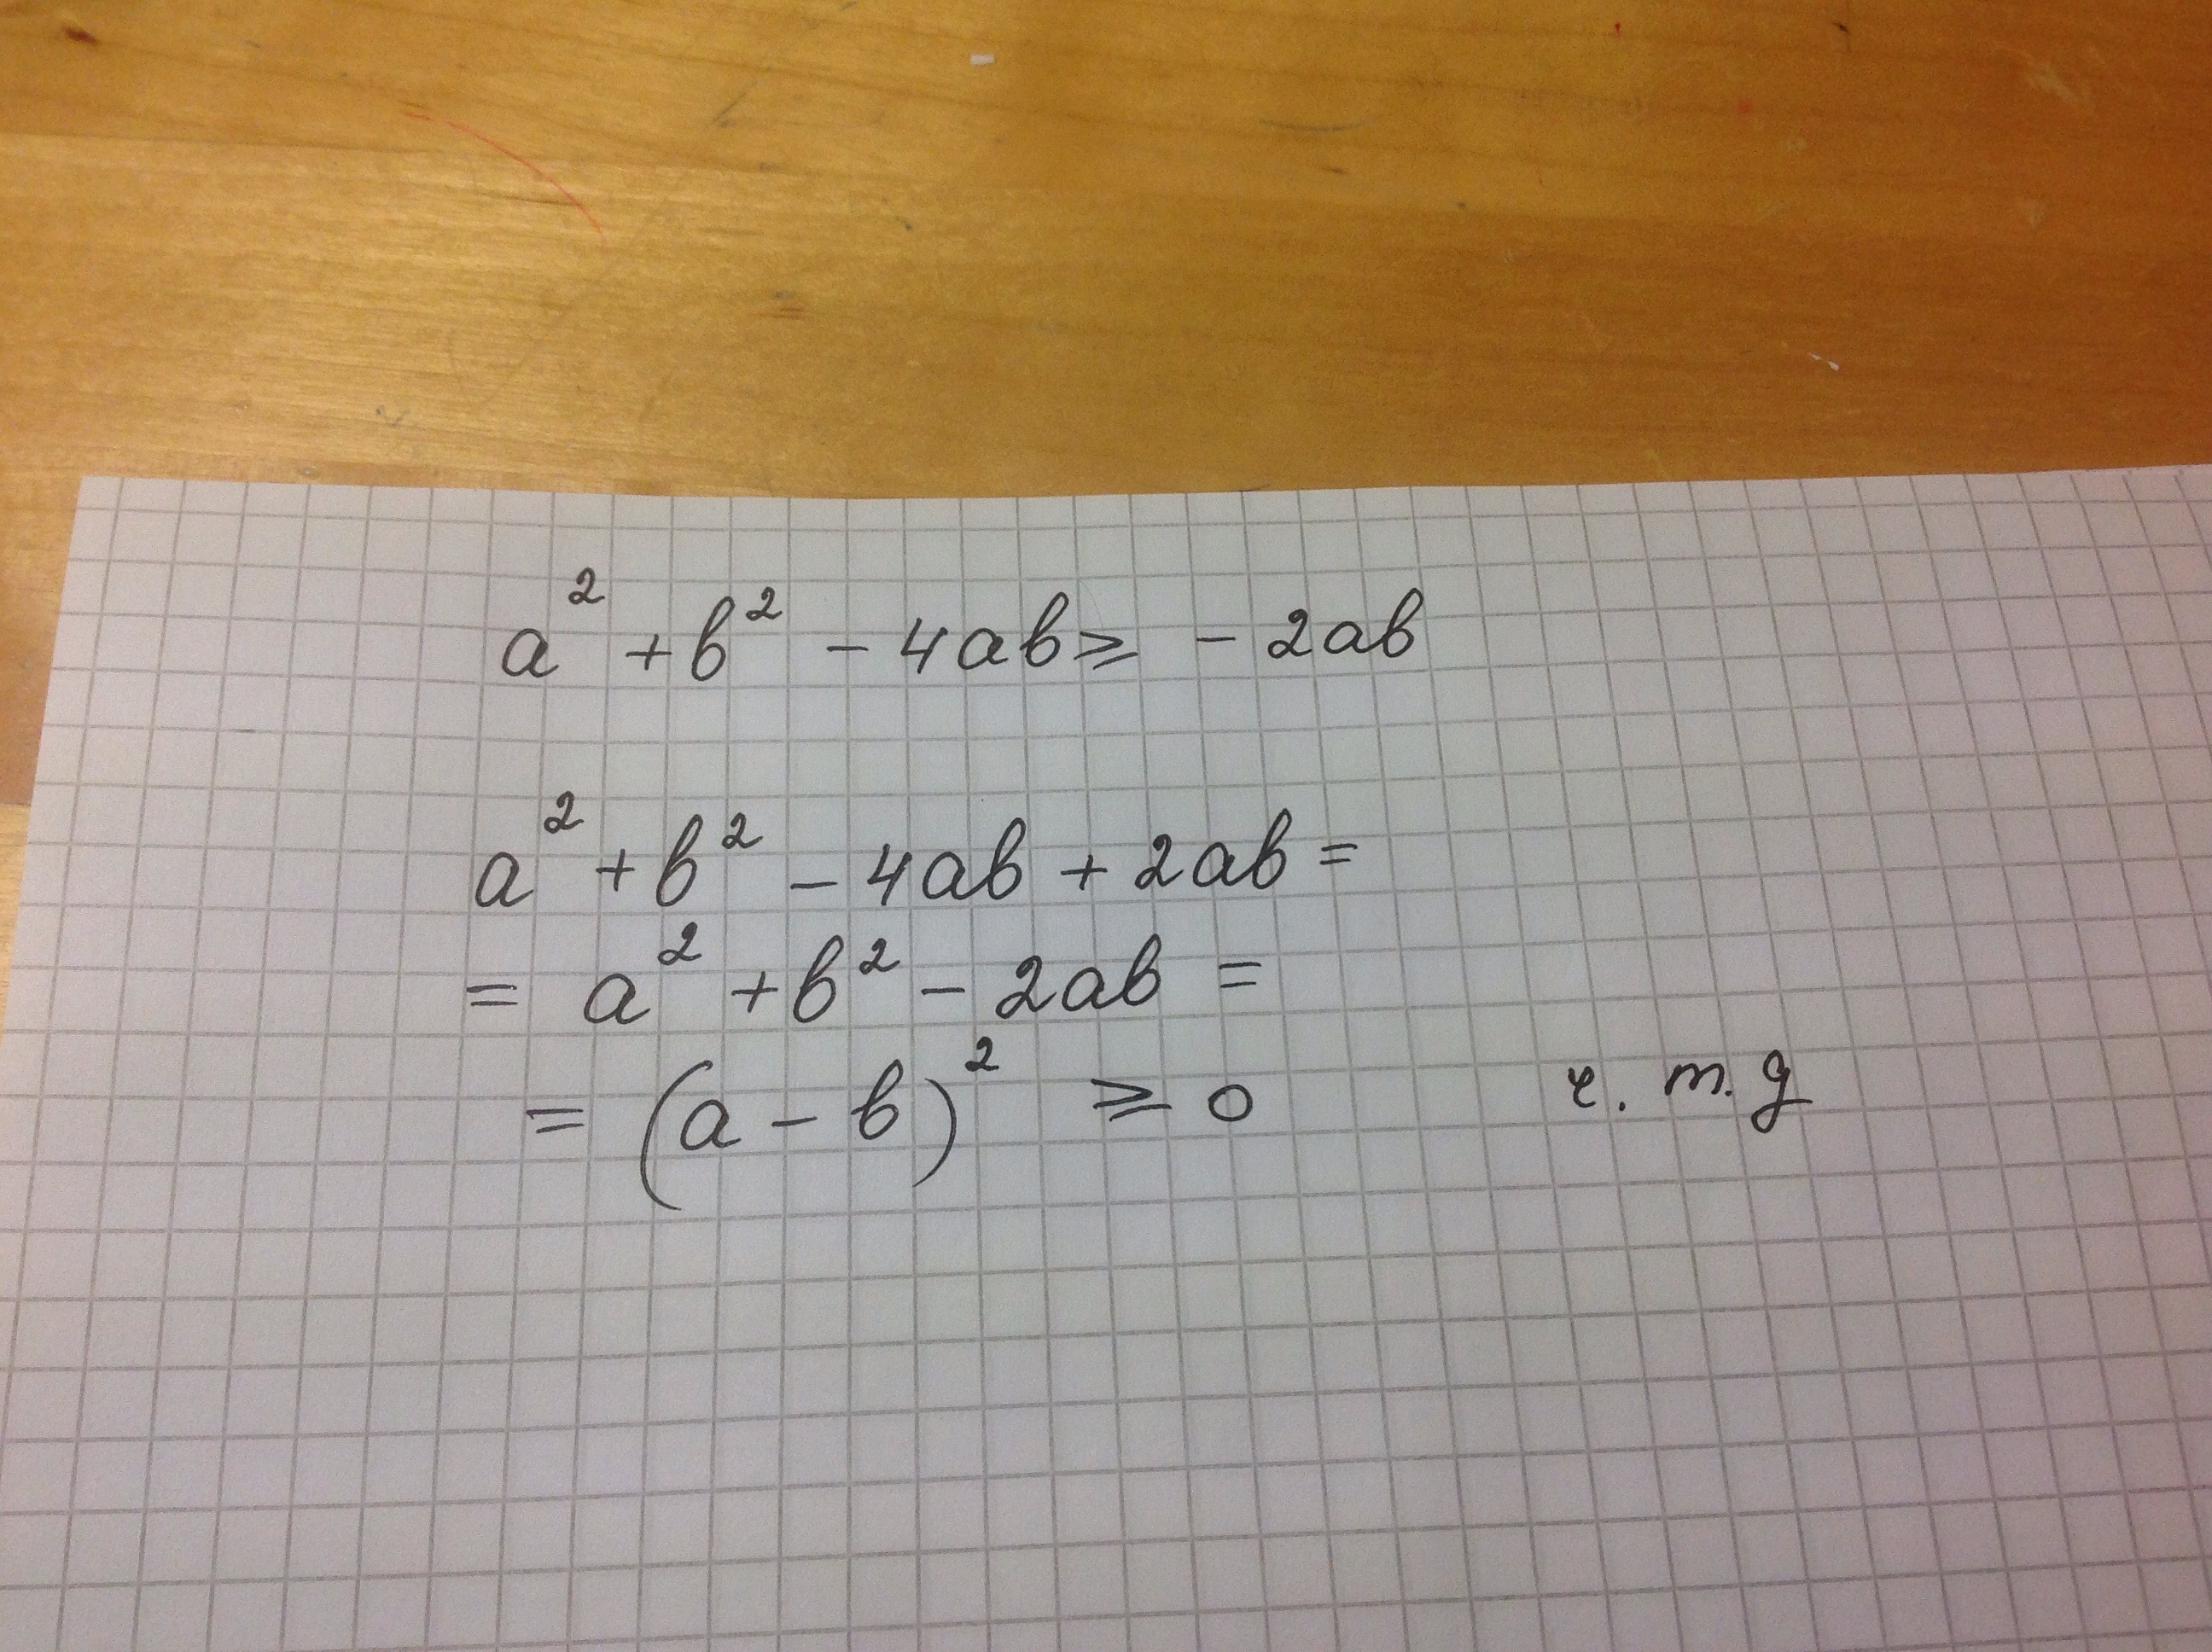 a² + b² - 4ab ≥ - 2ab
a² + b² - 4ab + 2ab =
= a² + b² - 2ab =
= (a - b)² ≥ 0 ч. т. д